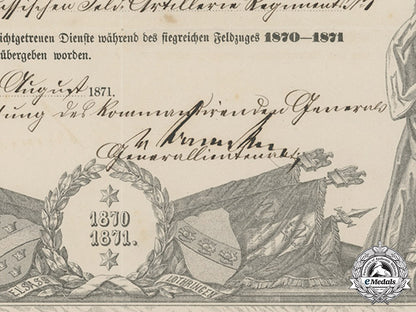 ssischen Feld-Artillerie Regiment No 1
ichtgetreuen Dienste während des siegreichen Feldzuges 1870—1871
übergeben worden.
August 1871.
ung des kommandirenden Generals
Generallieutenant
1870
1871.
ELSASS
LOTHRINGEN
eMedals